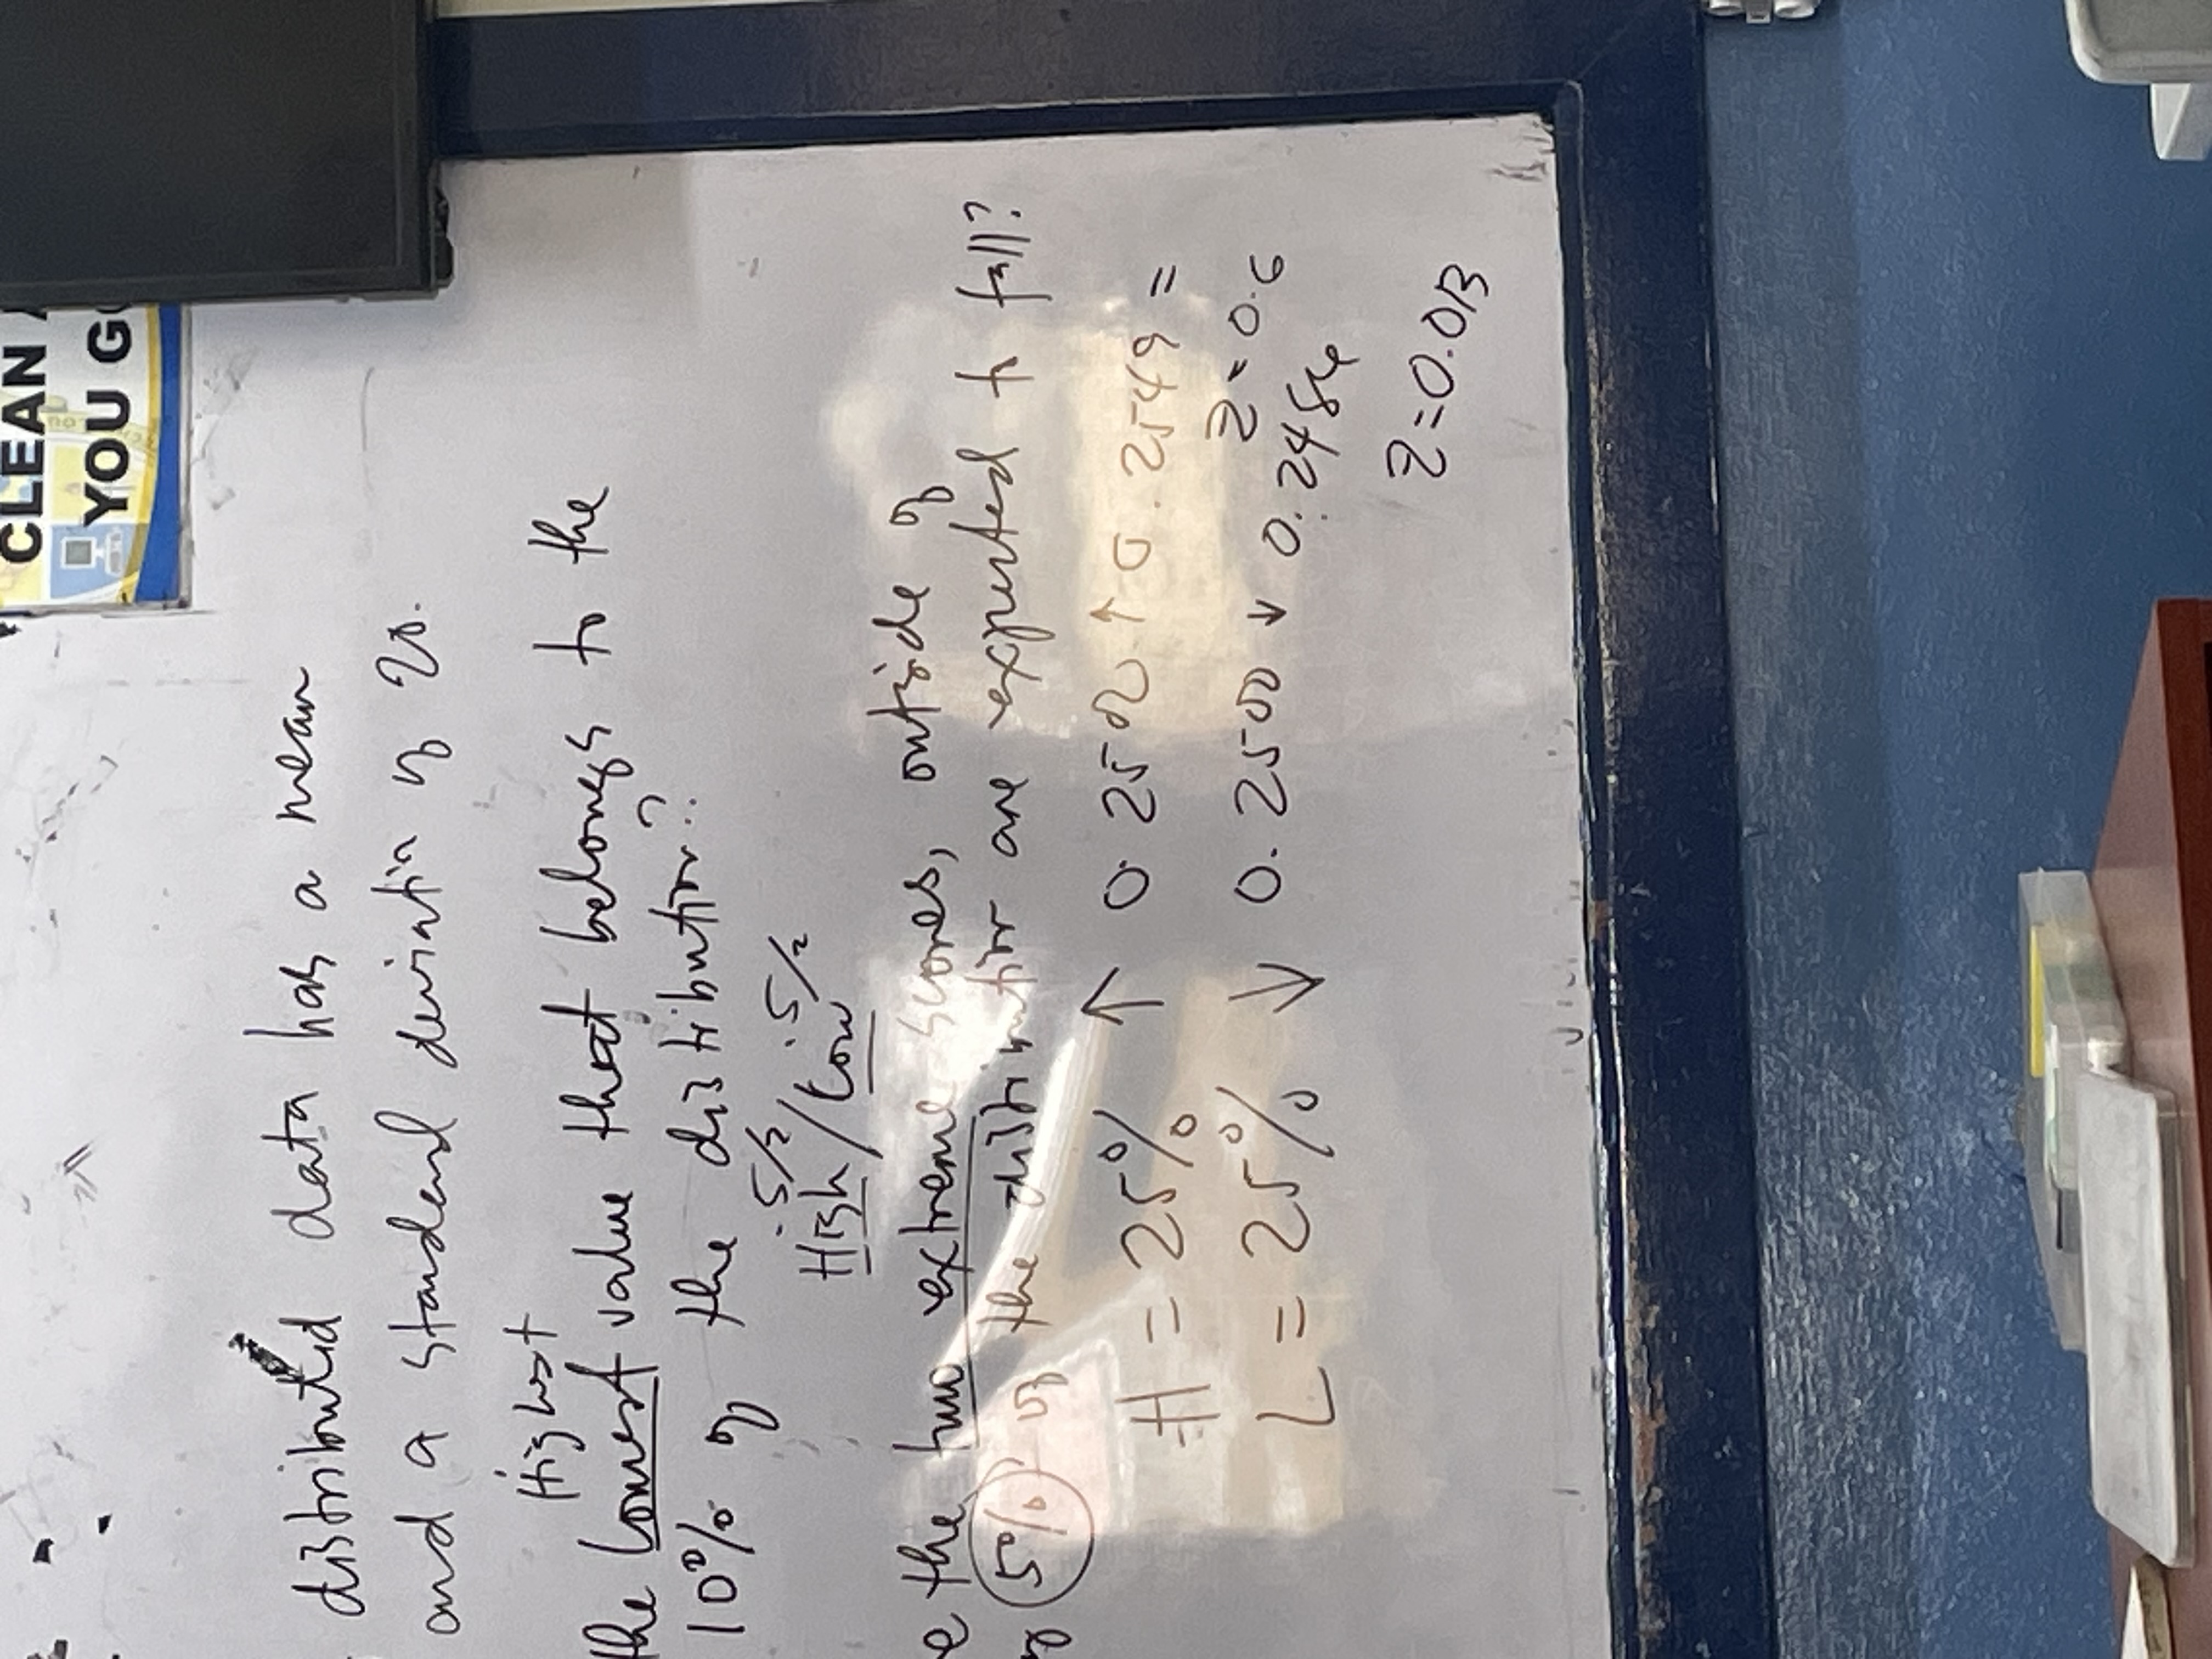 CLEAN
YOU G
distributed data has a mean
and a standard deviation of 20.
Highest
the lowest value that belongs to the
10% of the distribution?
.5/2 .5/2
High/Low
e the two extreme scores, outside of
5% of the distribution are expected to fall?
H = 25% ↑ 0.2500 ↑ 0.2549 =
Z=0.6
L = 25% ↓ 0.2500 ↓ 0.2486
Z=0.013